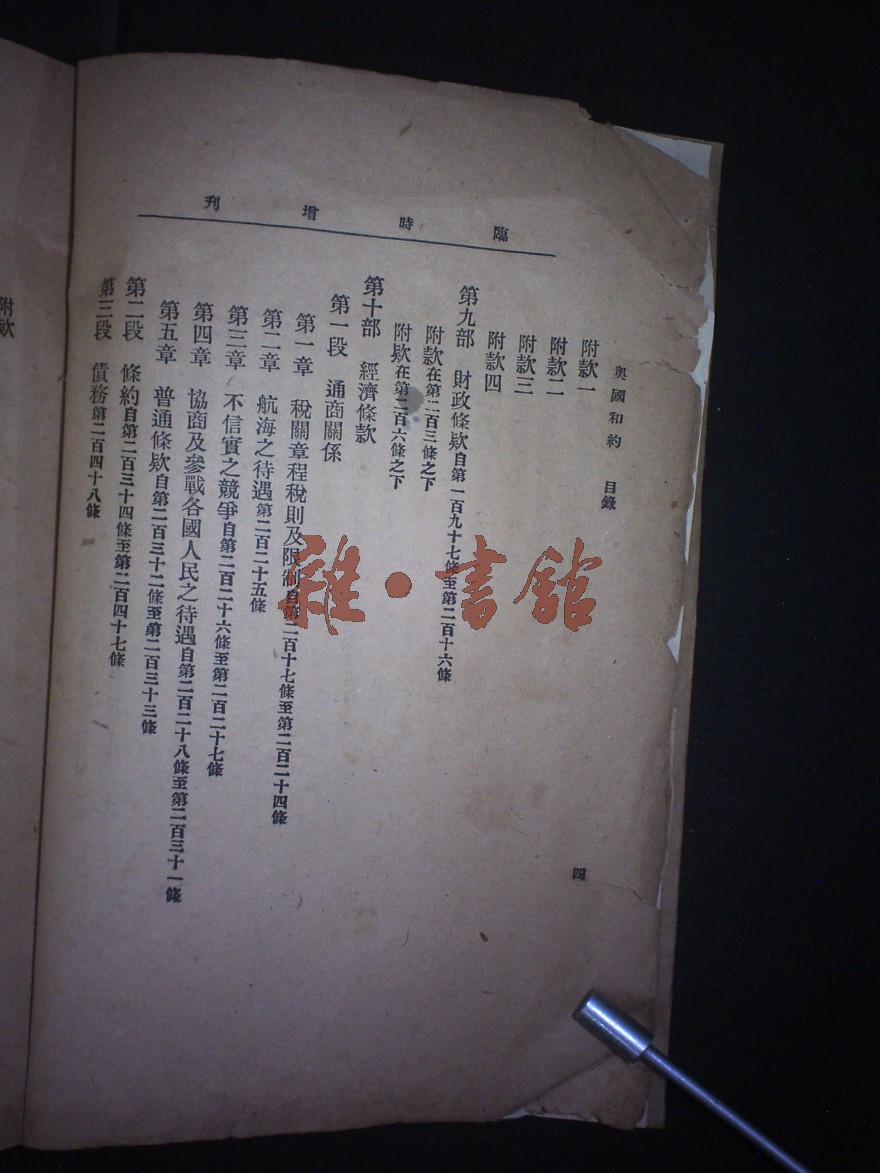 臨時增刊
奧國和約 目錄
四
附款一
附款二
附款三
附款四
第九部 財政條欵自第一百九十七條至第二百十六條
附款在第二百三條之下
附欵在第二百六條之下
第十部 經濟條款
第一段 通商關係
第一章 稅關章程稅則及限制自第二百十七條至第二百二十四條
第二章 航海之待遇第二百二十五條
第三章 不信實之競爭自第二百二十六條至第二百二十七條
第四章 協商及參戰各國人民之待遇自第二百二十八條至第二百三十一條
第五章 普通條欵自第二百三十二條至第二百三十三條
第二段 條約自第二百三十四條至第二百四十七條
第三段 債務第二百四十八條
附欵
雜·書館